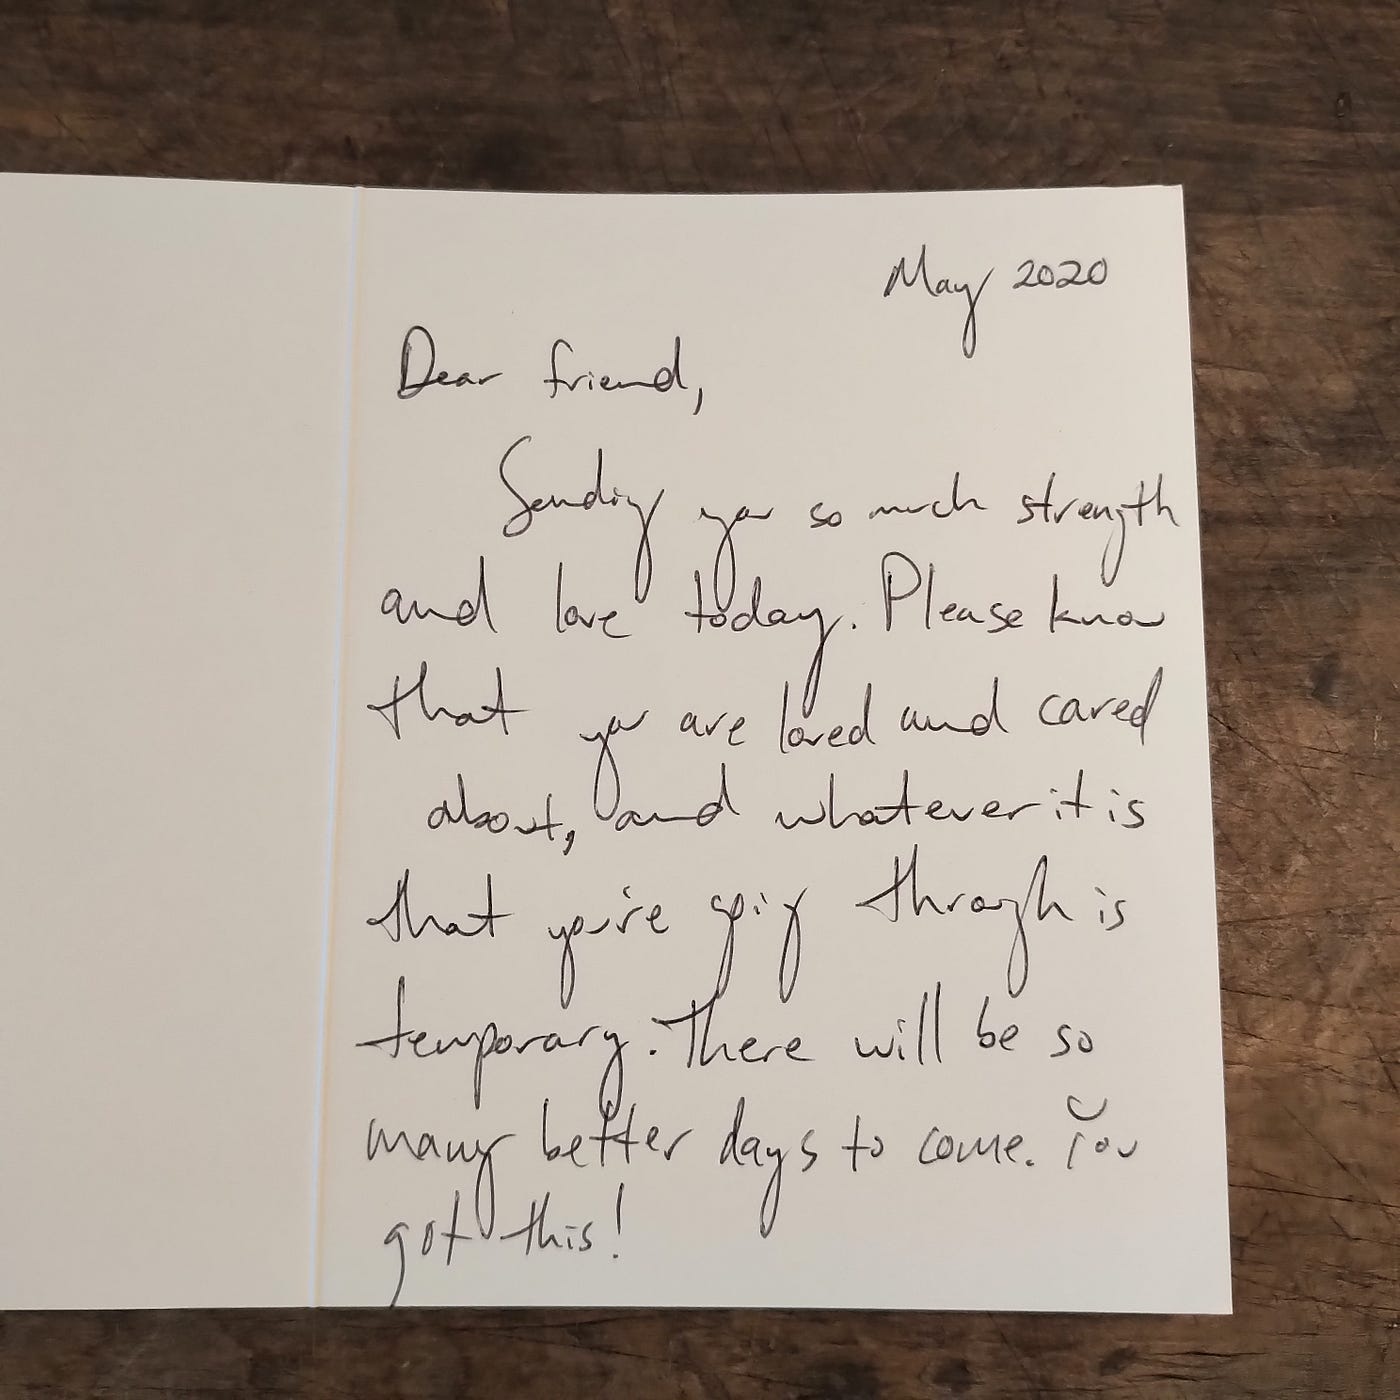 May 2020
Dear friend,
Sending you so much strength
and love today. Please know
that you are loved and cared
about, and whatever it is
that you're going through is
temporary. There will be so
many better days to come. You
got this!